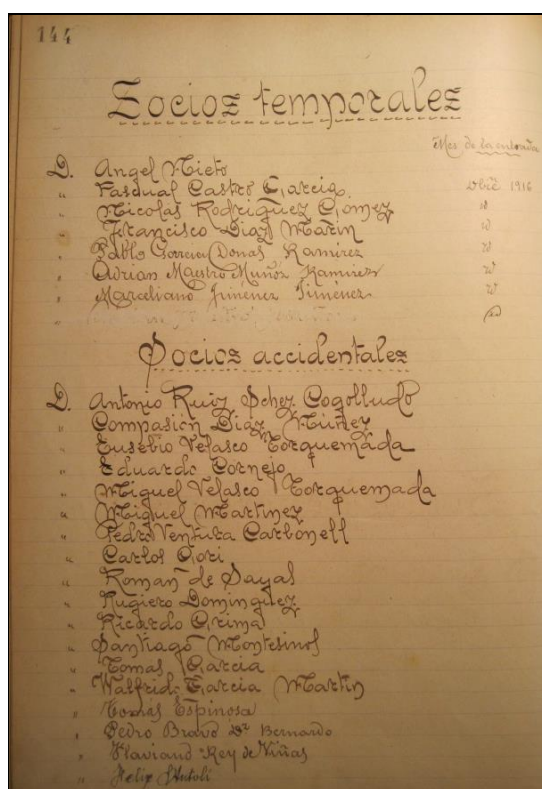 144
Socios temporales
Mes de la entrada
D. Angel Nieto
" Pascual Castro Garcia. Dbre 1916
" Nicolas Rodriguez Gomez "
" Francisco Diaz Martin "
" Pablo Garcia Donas Ramirez "
" Adrian Maestro Muñoz Ramirez "
" Marceliano Jiménez Jiménez "
"
Socios accidentales
D. Antonio Ruiz Schez Cogolludo
" Compasión Diaz Núñez
" Eusebio Velasco Torquemada
" Eduardo Cornejo
" Miguel Velasco Torquemada
" Miguel Martinez
" Pedro Ventura Carbonell
" Carlos Gori
" Roman de Sayal
" Rugiero Dominguez
" Ricardo Grima
" Santiago Montesinos
" Tomas Garcia
" Walfrido Garcia Martin
" Tomás Espinosa
" Pedro Bravo Dr Bernardo
" Flaviano Rey de Viñas
" Felix Antoli